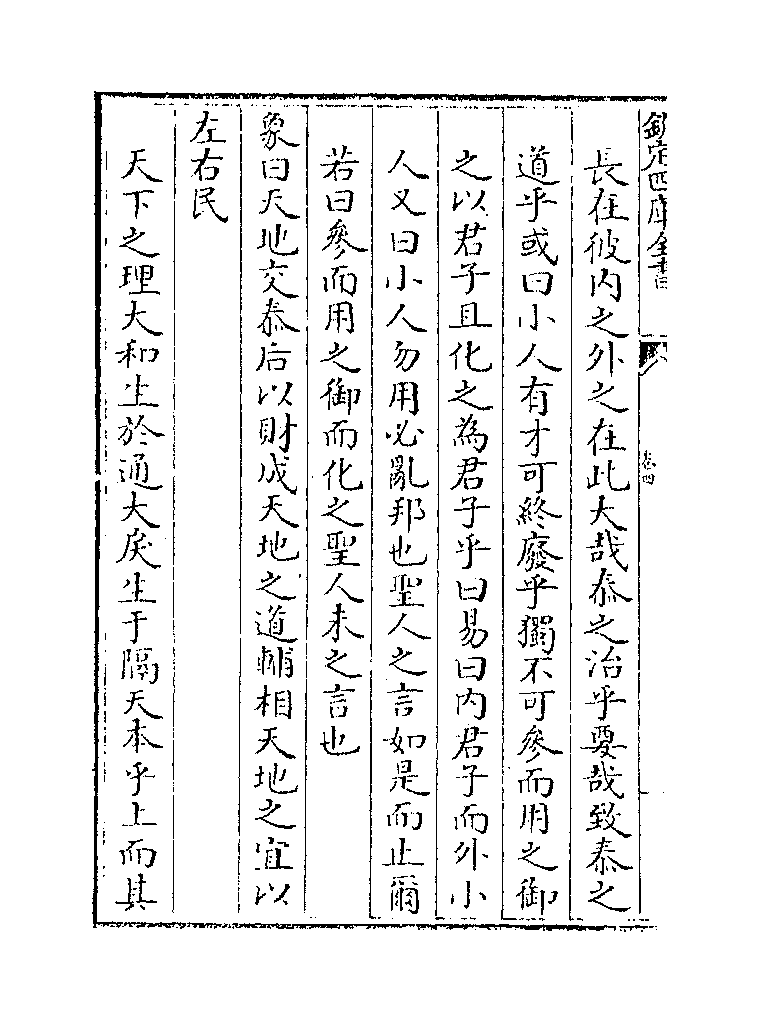 欽定四庫全書
卷四
長在彼内之外之在此大哉泰之治乎要哉致泰之
道乎或曰小人有才可終廢乎獨不可參而用之御
之以君子且化之為君子乎曰易曰内君子而外小
人又曰小人勿用必亂邦也聖人之言如是而止爾
若曰參而用之御而化之聖人未之言也
象曰天地交泰后以財成天地之道輔相天地之宜以
左右民
天下之理大和生於通大戾生于隔天本乎上而其